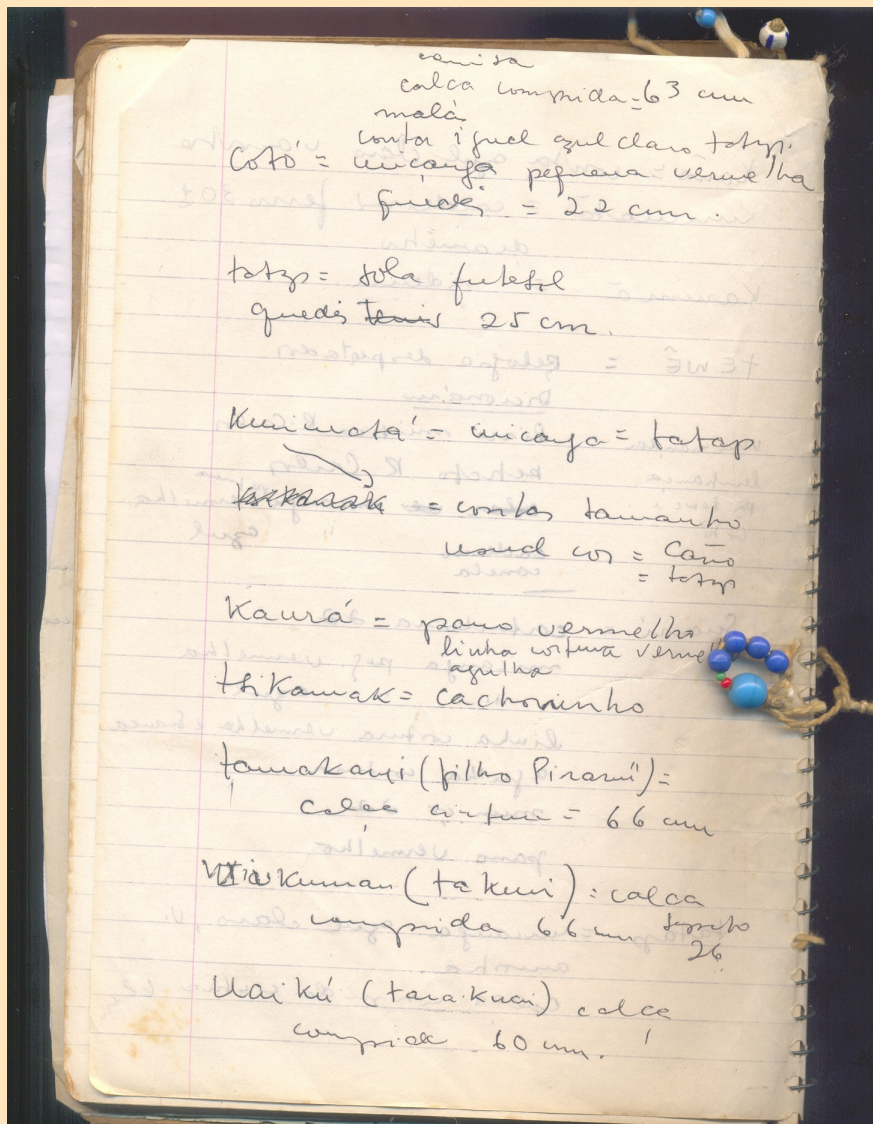 camisa
calca comprida = 63 cm
mala
contas igual azul claro tatap.
Cotó = miçanga pequena vermelha
quedis = 22 cm.
tatap = bola futebol
quedis tenis 25 cm.
Kunimatá = micanga = tatap
= contas tamanho
usual cor =
= tatap
Kaurá = pano vermelho
linha costura verme
agulha
tsikamak = cachorrinho
tamakami (filho Pirarri) =
calça = 66 cm
(takuni) = calca
comprida 66 cm
26
Uaikú (tarakuai) calça
60 cm.